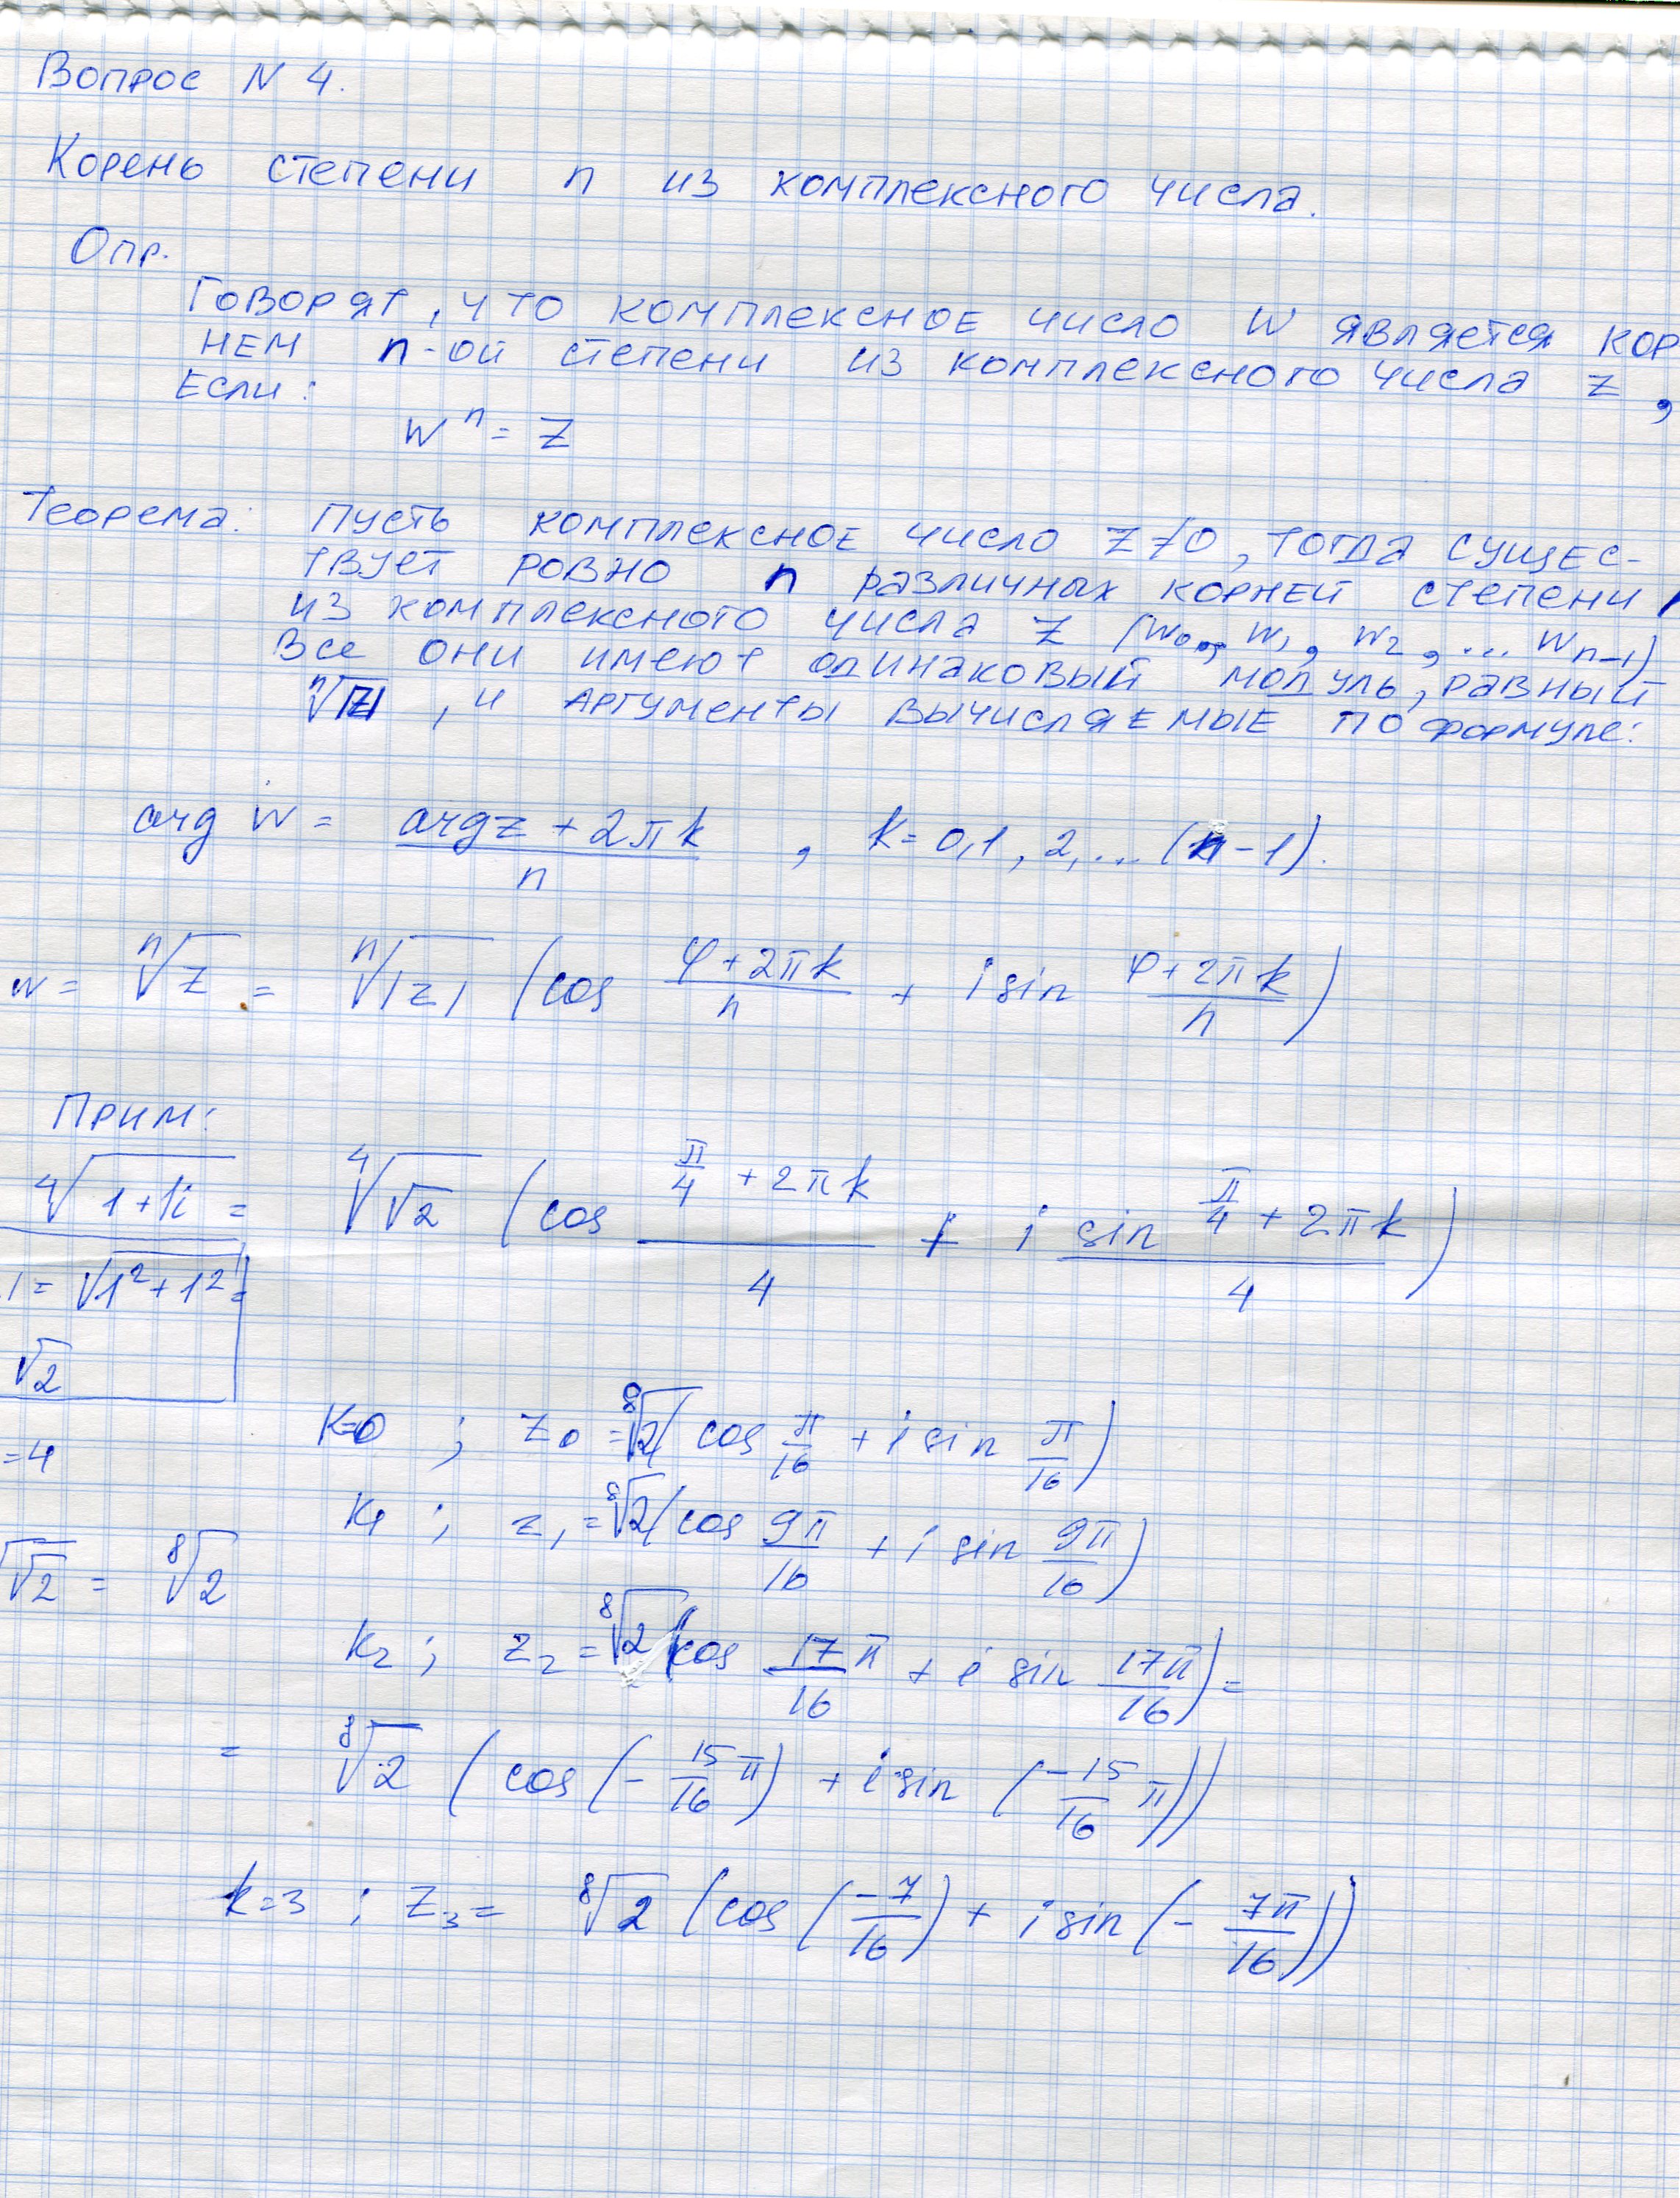 Вопрос N 4.
Корень степени n из комплексного числа.
Опр.
Говорят, что комплексное число W является кор
нем n-ой степени из комплексного числа Z,
Если:
Wⁿ = Z
Теорема: Пусть комплексное число Z≠0, тогда сущес-
твует ровно n различных корней степени
из комплексного числа Z (W₀, W₁, W₂, ... Wₙ₋₁)
Все они имеют одинаковый модуль, равный
ⁿ√|Z|, и аргументы вычисляемые по формуле:
arg W = (arg z + 2πk)/n, k=0,1,2,...(n-1).
w = ⁿ√z = ⁿ√|z| (cos (φ+2πk)/n + i sin (φ+2πk)/n)
Прим:
⁴√(1+1i) = ⁴√(√2) (cos (π/4 + 2πk)/4 + i sin (π/4 + 2πk)/4)
1 = √(1²+1²) =
√2
K=0 ; z₀ = ⁸√2 (cos π/16 + i sin π/16)
=4
K₁ ; z₁ = ⁸√2 (cos 9π/16 + i sin 9π/16)
√(√2) = ⁸√2
K₂ ; z₂ = ⁸√2 (cos 17/16 π + i sin 17π/16) =
= ⁸√2 (cos (-15/16 π) + i sin (-15/16 π))
k=3 ; z₃ = ⁸√2 (cos (-7/16) + i sin (-7π/16))